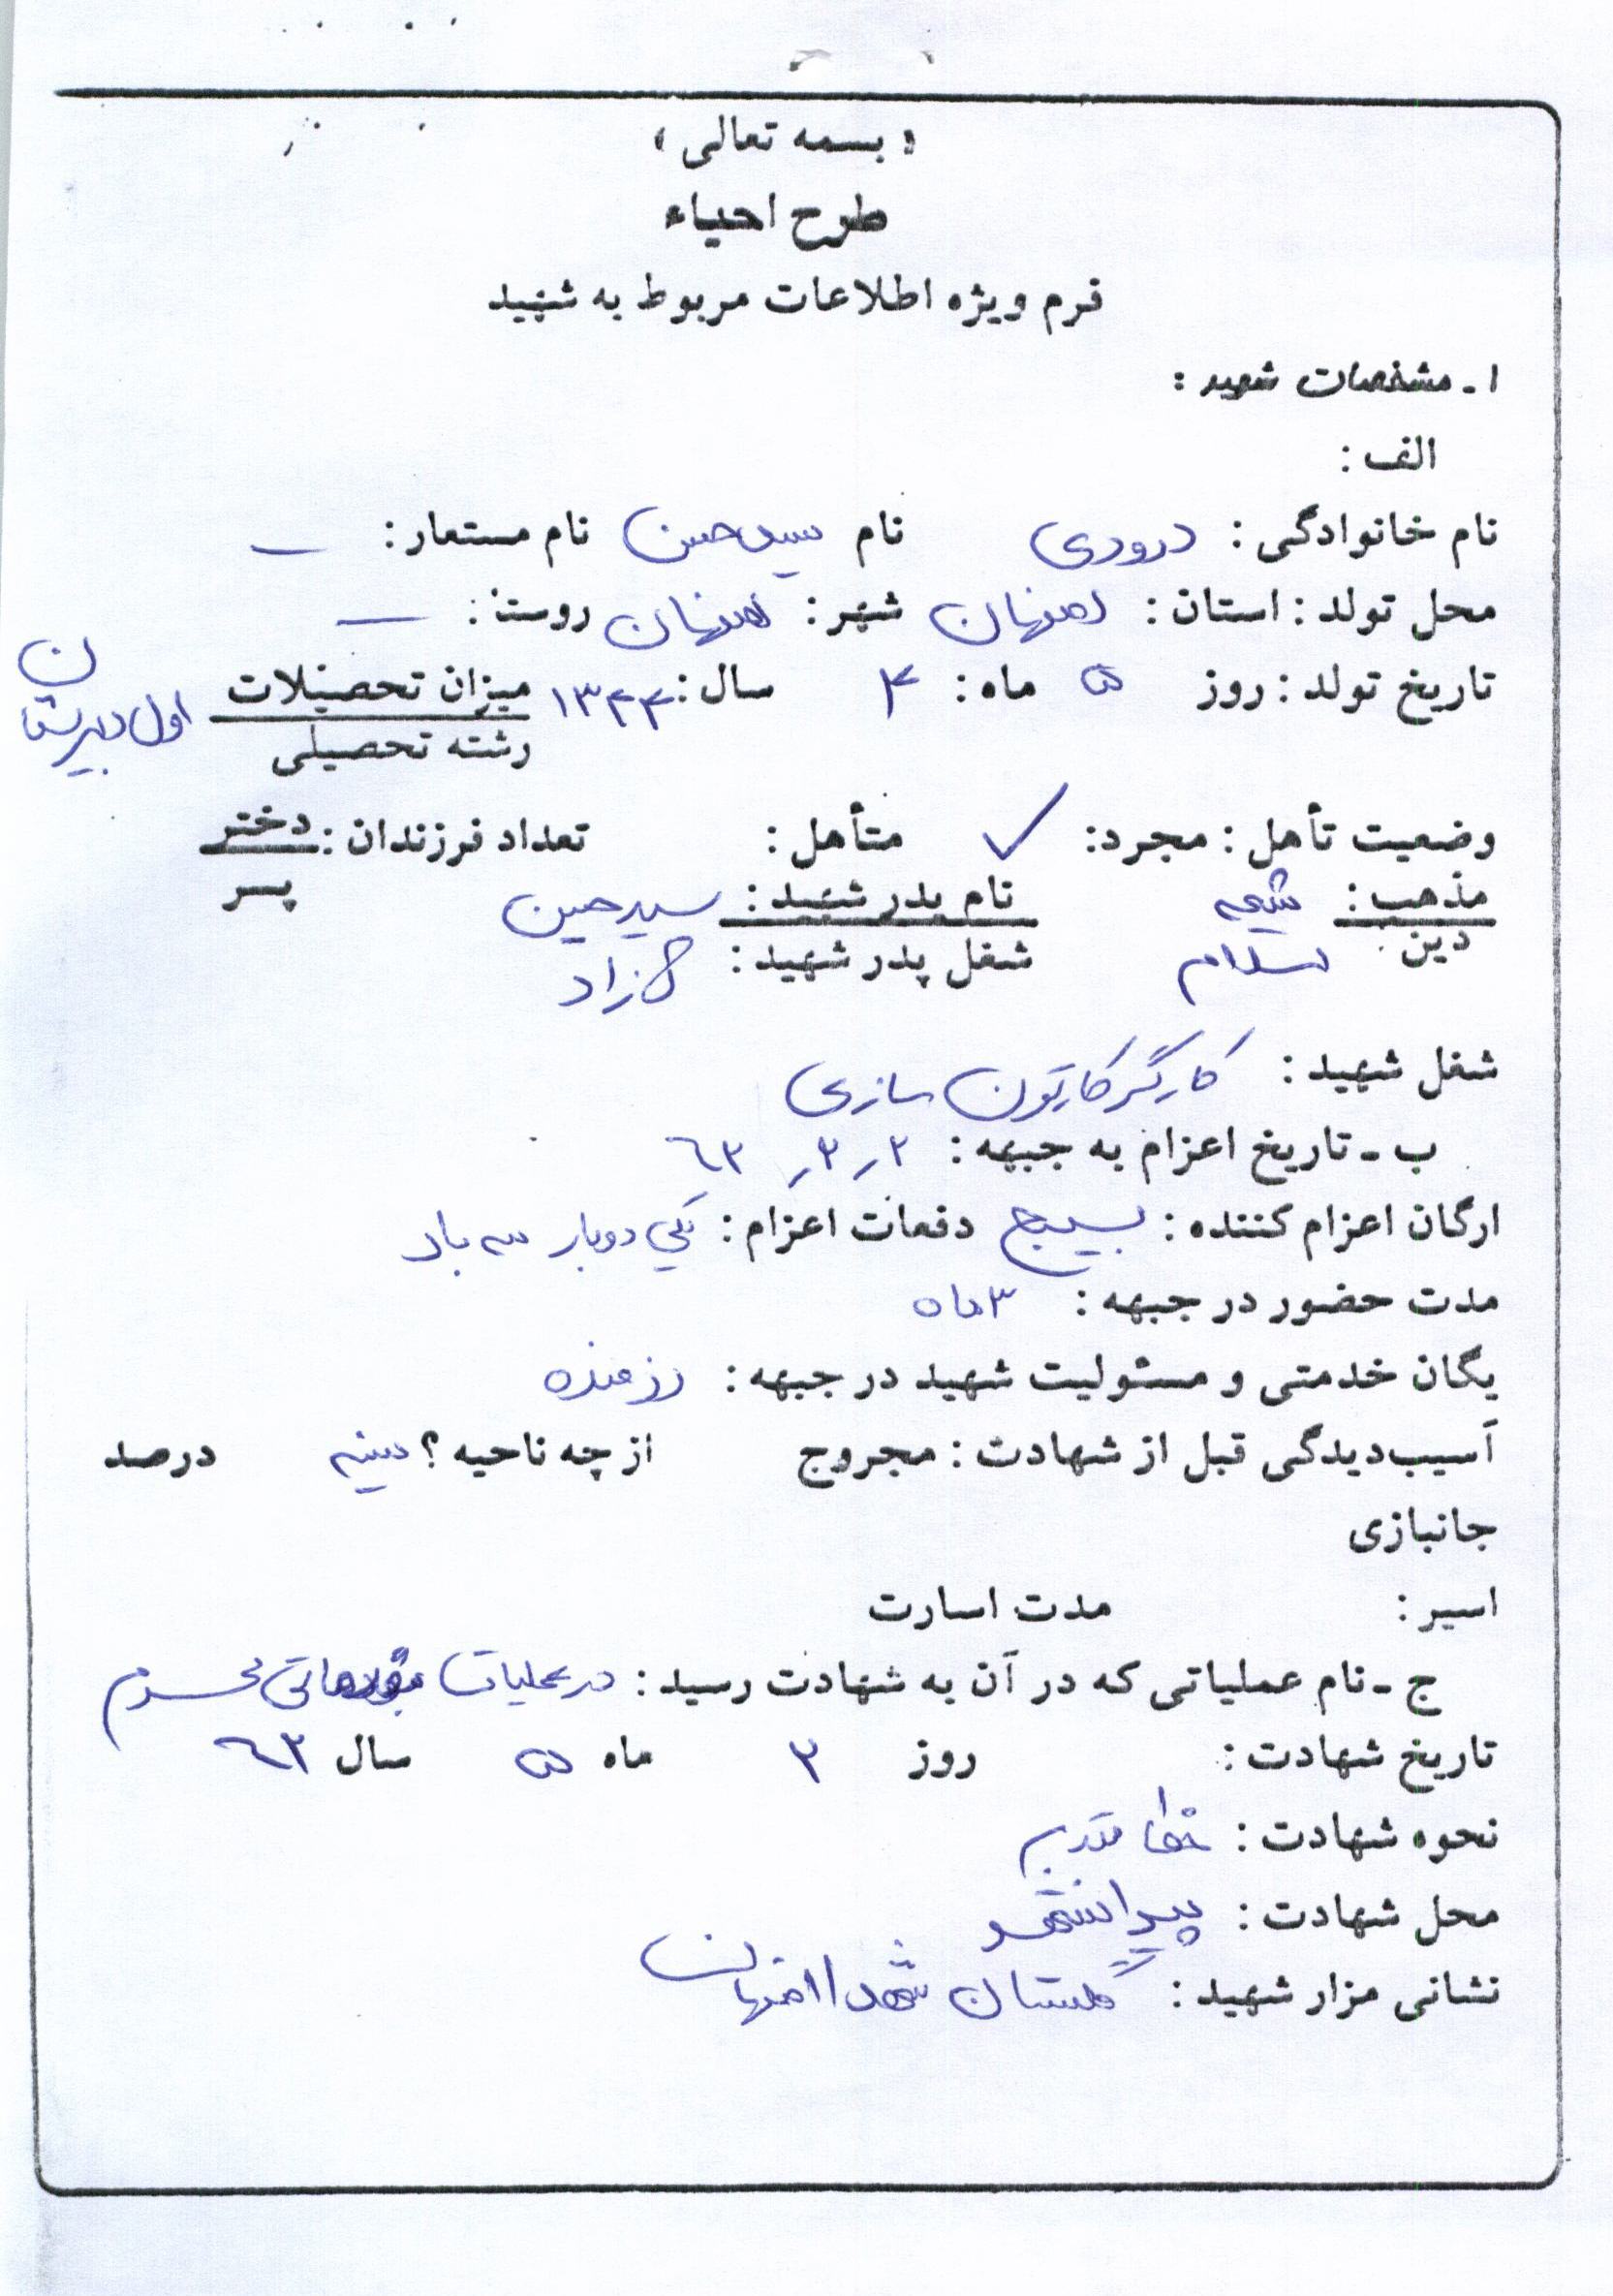 « بسمه تعالی »
طرح احیاء
فرم ویژه اطلاعات مربوط به شهید
۱ ـ مشخصات شهید :
الف :
نام خانوادگی : درودی نام سید حسن نام مستعار : —
محل تولد : استان : اصفهان شهر : اصفهان روستا : —
تاریخ تولد : روز ۵ ماه : ۴ سال : ۱۳۴۴ میزان تحصیلات اول دبیرستان
رشته تحصیلی
وضعیت تأهل : مجرد : ✓ متأهل : تعداد فرزندان : دختر
پسر
مذهب : شیعه نام پدر شهید : سید حسین
دین : اسلام شغل پدر شهید :
شغل شهید : کارگر کارتون سازی
ب ـ تاریخ اعزام به جبهه : ۲ ر ۲ ر ۶۳
ارگان اعزام کننده : بسیج دفعات اعزام : یکی دوبار سه بار
مدت حضور در جبهه : ۳ ماه
یگان خدمتی و مسئولیت شهید در جبهه : رزمنده
آسیب‌دیدگی قبل از شهادت : مجروح از چه ناحیه ؟ سینه درصد
جانبازی
اسیر : مدت اسارت
ج ـ نام عملیاتی که در آن به شهادت رسید : در عملیات مقدماتی محرم
تاریخ شهادت : روز ۲ ماه ۵ سال ۶۳
نحوه شهادت : خط مقدم
محل شهادت : پیرانشهر
نشانی مزار شهید : گلستان شهدا اصفهان